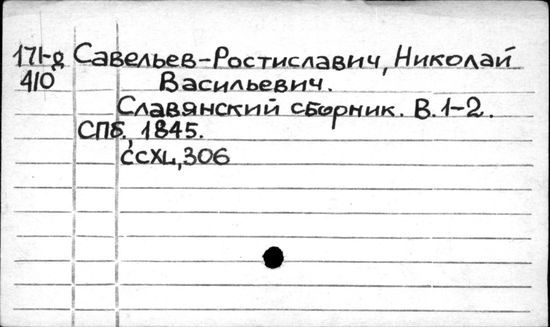 171-д Савельев-Ростиславич, Николай
410 Васильевич.
Славянский сборник. В. 1-2.
СПб., 1845.
CCXL, 306